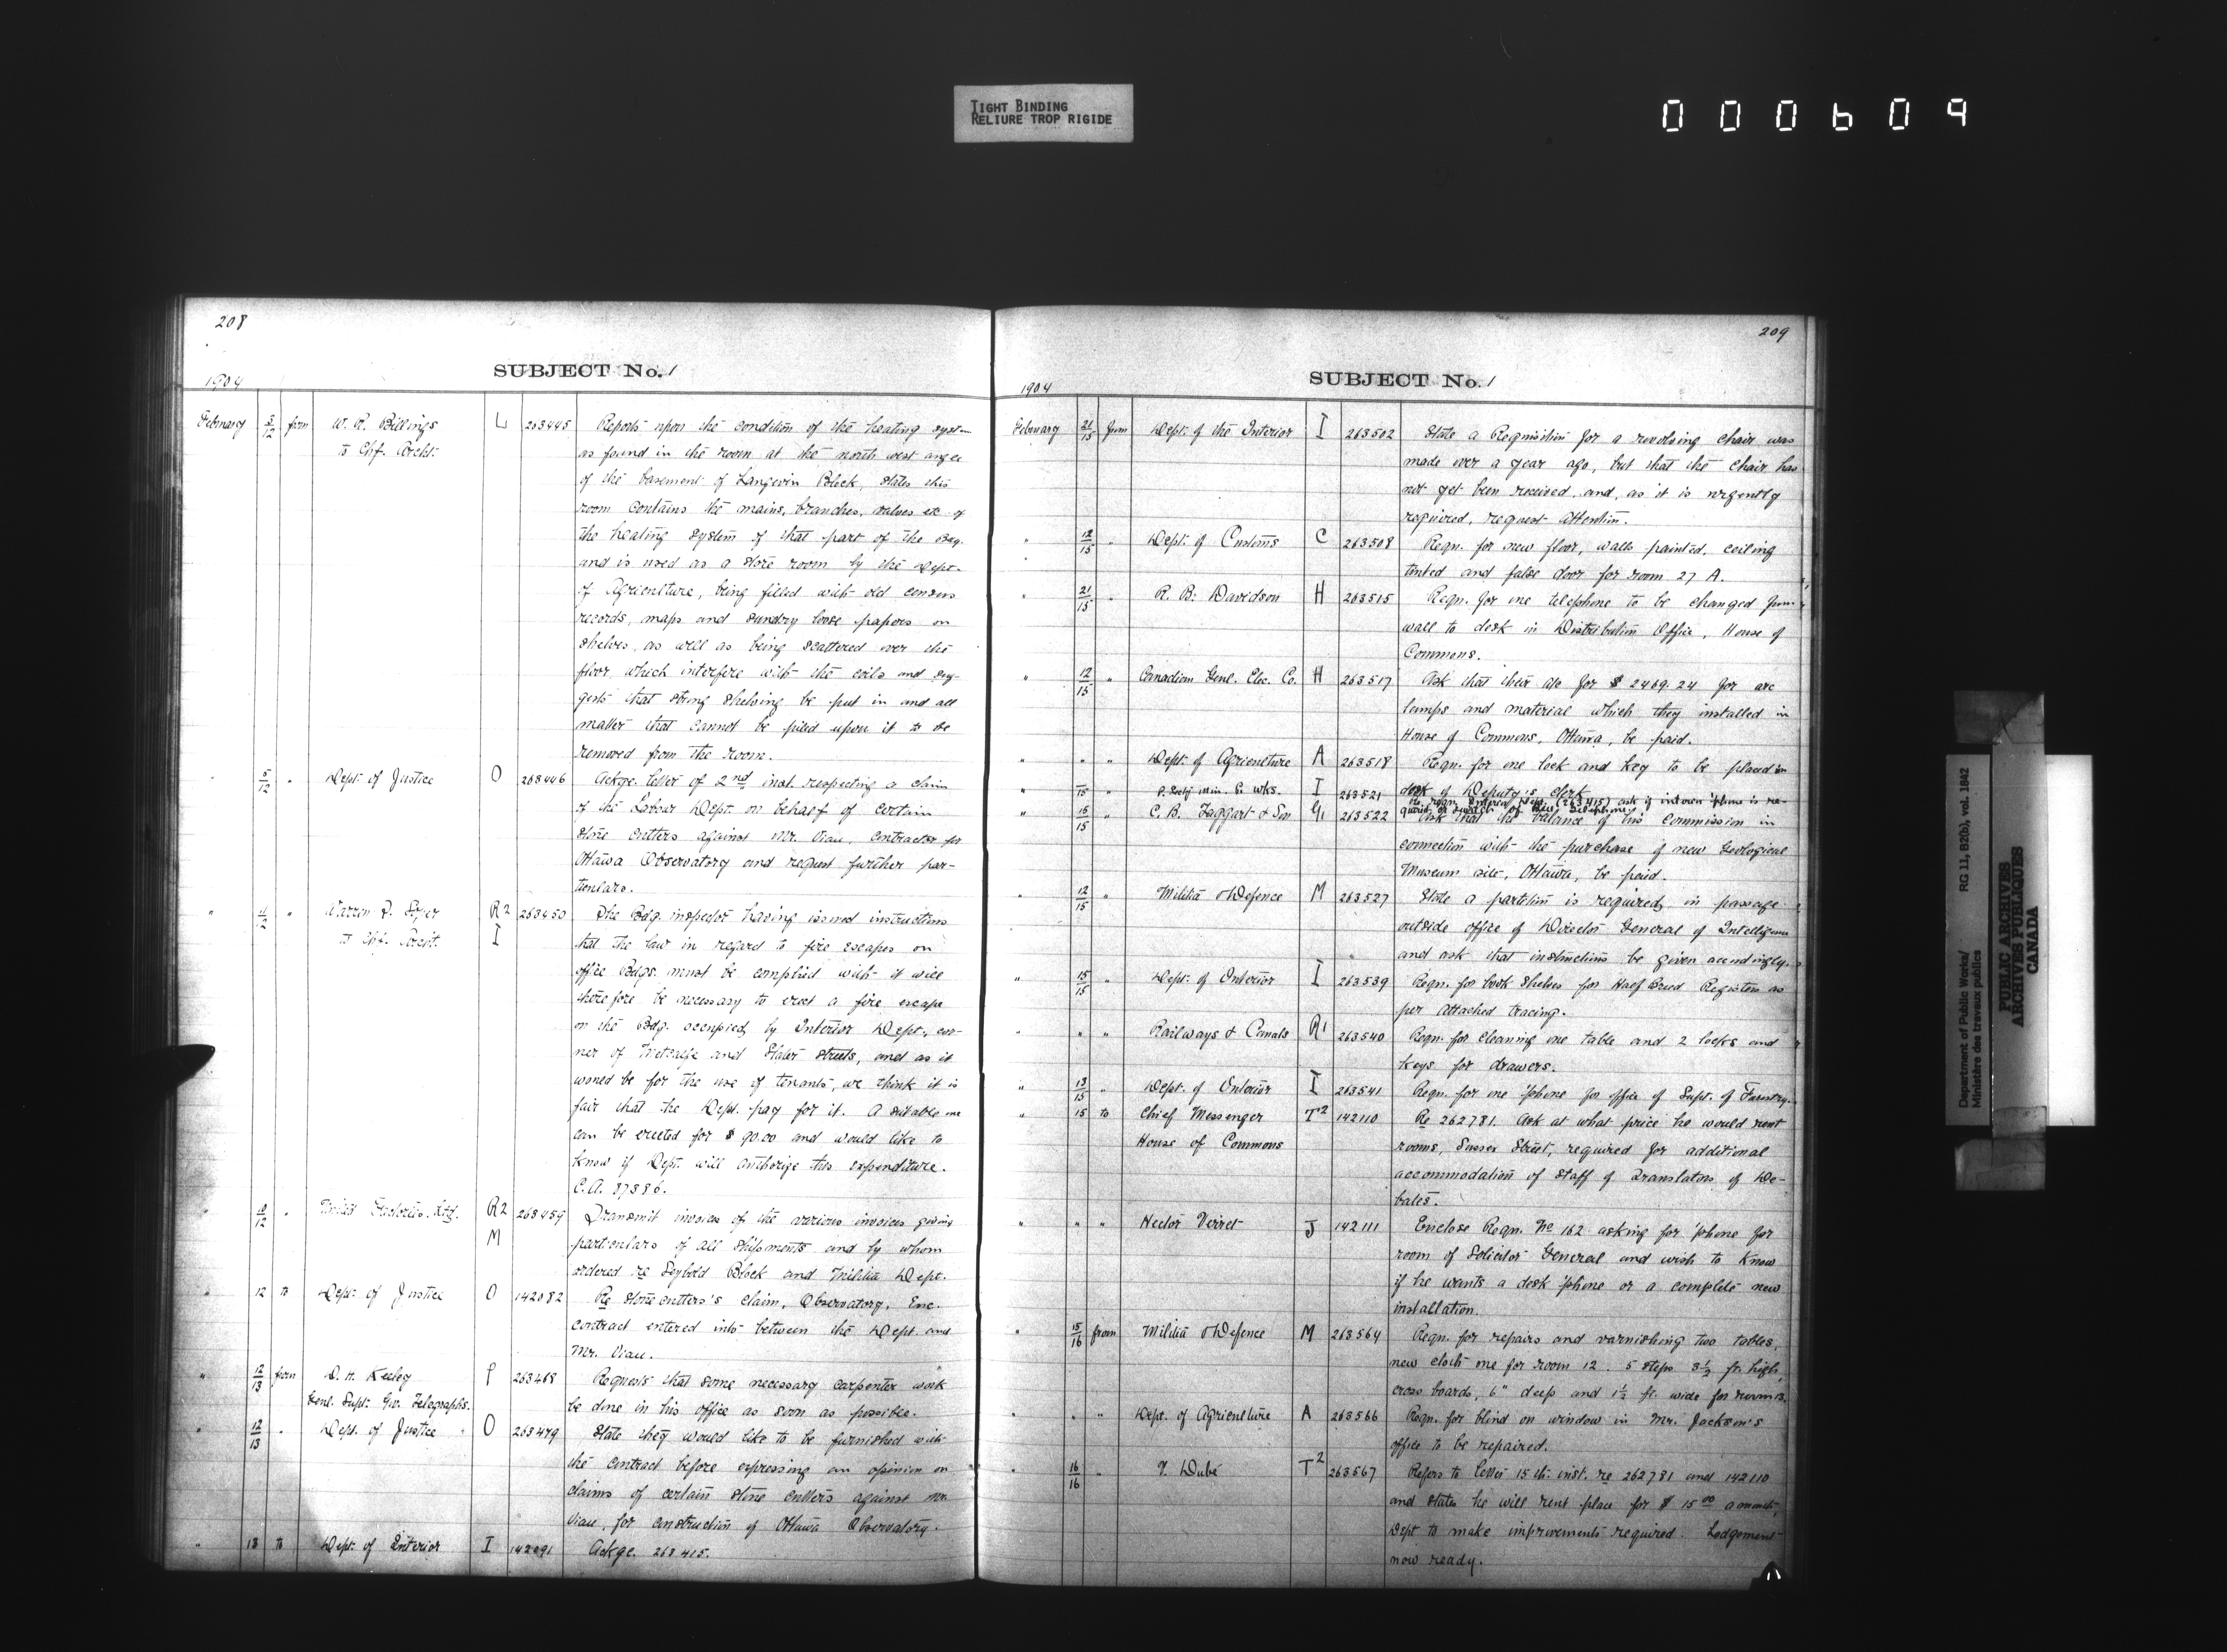 TIGHT BINDING
RELIURE TROP RIGIDE
000609
208
SUBJECT No. 1
1904
February 5/12 from W. R. Billings L 263445 Reports upon the condition of the heating system
to Chf. Archt. as found in the room at the north west angle
of the basement of Langevin Block, states this
room contains the mains, branches, valves etc of
the heating system of that part of the Bdg.
and is used as a store room by the Dept.
of Agriculture, being filled with old census
records, maps and sundry loose papers on
shelves, as well as being scattered over the
floor which interfere with the coils and sug-
gests that strong shelving be put in and all
matter that cannot be piled upon it to be
removed from the room.
" 5/12 " Dept. of Justice O 263446 Ackge. letter of 2nd inst. respecting a claim
of the Labour Dept. on behalf of certain
stone cutters against Mr. Viau, contractor for
Ottawa Observatory and request further par-
ticulars.
" " Warren P. R2 263450 The Bdg. inspector having issued instructions
to Chf. Archt. I that the law in regard to fire escapes on
office Bdgs. must be complied with it will
therefore be necessary to erect a fire escape
on the Bdg. occupied by Interior Dept., cor-
ner of Metcalfe and Slater streets, and as it
would be for the use of tenants, we think it is
fair that the Dept. pay for it. A suitable one
can be erected for $ 90.00 and would like to
know if Dept. will authorize this expenditure.
C.A. 37886.
" 10/12 " Factories Ltd. R2 263459 Transmit invoices of the various invoices giving
M particulars of all shipments and by whom
ordered re Seybold Block and Militia Dept.
" 12 to Dept. of Justice O 142082 Re stone cutters's claim, Observatory, Enc.
contract entered into between the Dept. and
Mr. Viau.
" 12/13 from D. H. Keeley P 263468 Requests that some necessary carpenter work
Genl. Supt. Gov. Telegraphs. be done in his office as soon as possible.
" 12/13 " Dept. of Justice O 263479 State they would like to be furnished with
the contract before expressing an opinion on
claims of certain stone cutters against Mr.
Viau, for construction of Ottawa Observatory.
" 13 to Dept. of Interior I 142091 Ackge. 263415.
209
SUBJECT No. 1
1904
February 21/15 from Dept. of the Interior I 263502 State a Requisition for a revolving chair was
made over a year ago, but that the chair has
not yet been received, and, as it is urgently
required, request attention.
" 12/15 " Dept. of Customs C 263508 Reqn. for new floor, walls painted, ceiling
tinted and false door for room 27 A.
" 21/15 " R. B. Davidson H 263515 Reqn. for one telephone to be changed from
wall to desk in Distribution Office, House of
Commons.
" 12/15 " Canadian Genl. Elec. Co. H 263517 Ask that their a/c for $ 2469.24 for arc
lamps and material which they installed in
House of Commons, Ottawa, be paid.
" " " Dept. of Agriculture A 263518 Reqn. for one lock and key to be placed on
desk of Deputy's clerk
" /15 " P. Secty Min. P. Wks. I 263521 Re reqn. Interior Dept. (263415) ask if intercom 'phone is re-
quired or switch of Bell telephone
" 15/15 " C. B. Taggart & Son G1 263522 Ask that the balance of his commission in
connection with the purchase of new Geological
Museum site, Ottawa, be paid.
" 12/15 " Militia & Defence M 263527 State a partition is required in passage
outside office of Director General of Intelligence
and ask that instructions be given accordingly.
" 15/15 " Dept. of Interior I 263539 Reqn. for book shelves for Half Breed Registers as
per attached tracing.
" " " Railways & Canals R1 263540 Reqn. for cleaning one table and 2 locks and
keys for drawers.
" 13/15 " Dept. of Interior I 263541 Reqn. for one 'phone for office of Supt. of Forestry.
" 15 to Chief Messenger T2 142110 Re 262781. Ask at what price he would rent
House of Commons rooms, Sussex Street, required for additional
accommodation of staff of Translators of De-
bates.
" " " Hector Verret J 142111 Enclose Reqn. No 162 asking for 'phone for
room of Solicitor General and wish to know
if he wants a desk 'phone or a complete new
installation.
" 15/16 from Militia & Defence M 263564 Reqn. for repairs and varnishing two tables,
new cloth one for room 12. 5 steps 3½ ft. high,
cross boards, 6" deep and 1½ ft. wide for room 13.
" " " Dept. of Agriculture A 263566 Reqn. for blind on window in Mr. Jackson's
office to be repaired.
" 16/16 " V. Dubé T2 263567 Refers to letter 15th inst. re 262781 and 142110
and states he will rent place for $ 15 00 a month,
Dept to make improvements required. Lodgement
now ready.
Department of Public Works/
Ministère des travaux publics
RG 11, B2(b), vol. 1842
PUBLIC ARCHIVES
ARCHIVES PUBLIQUES
CANADA